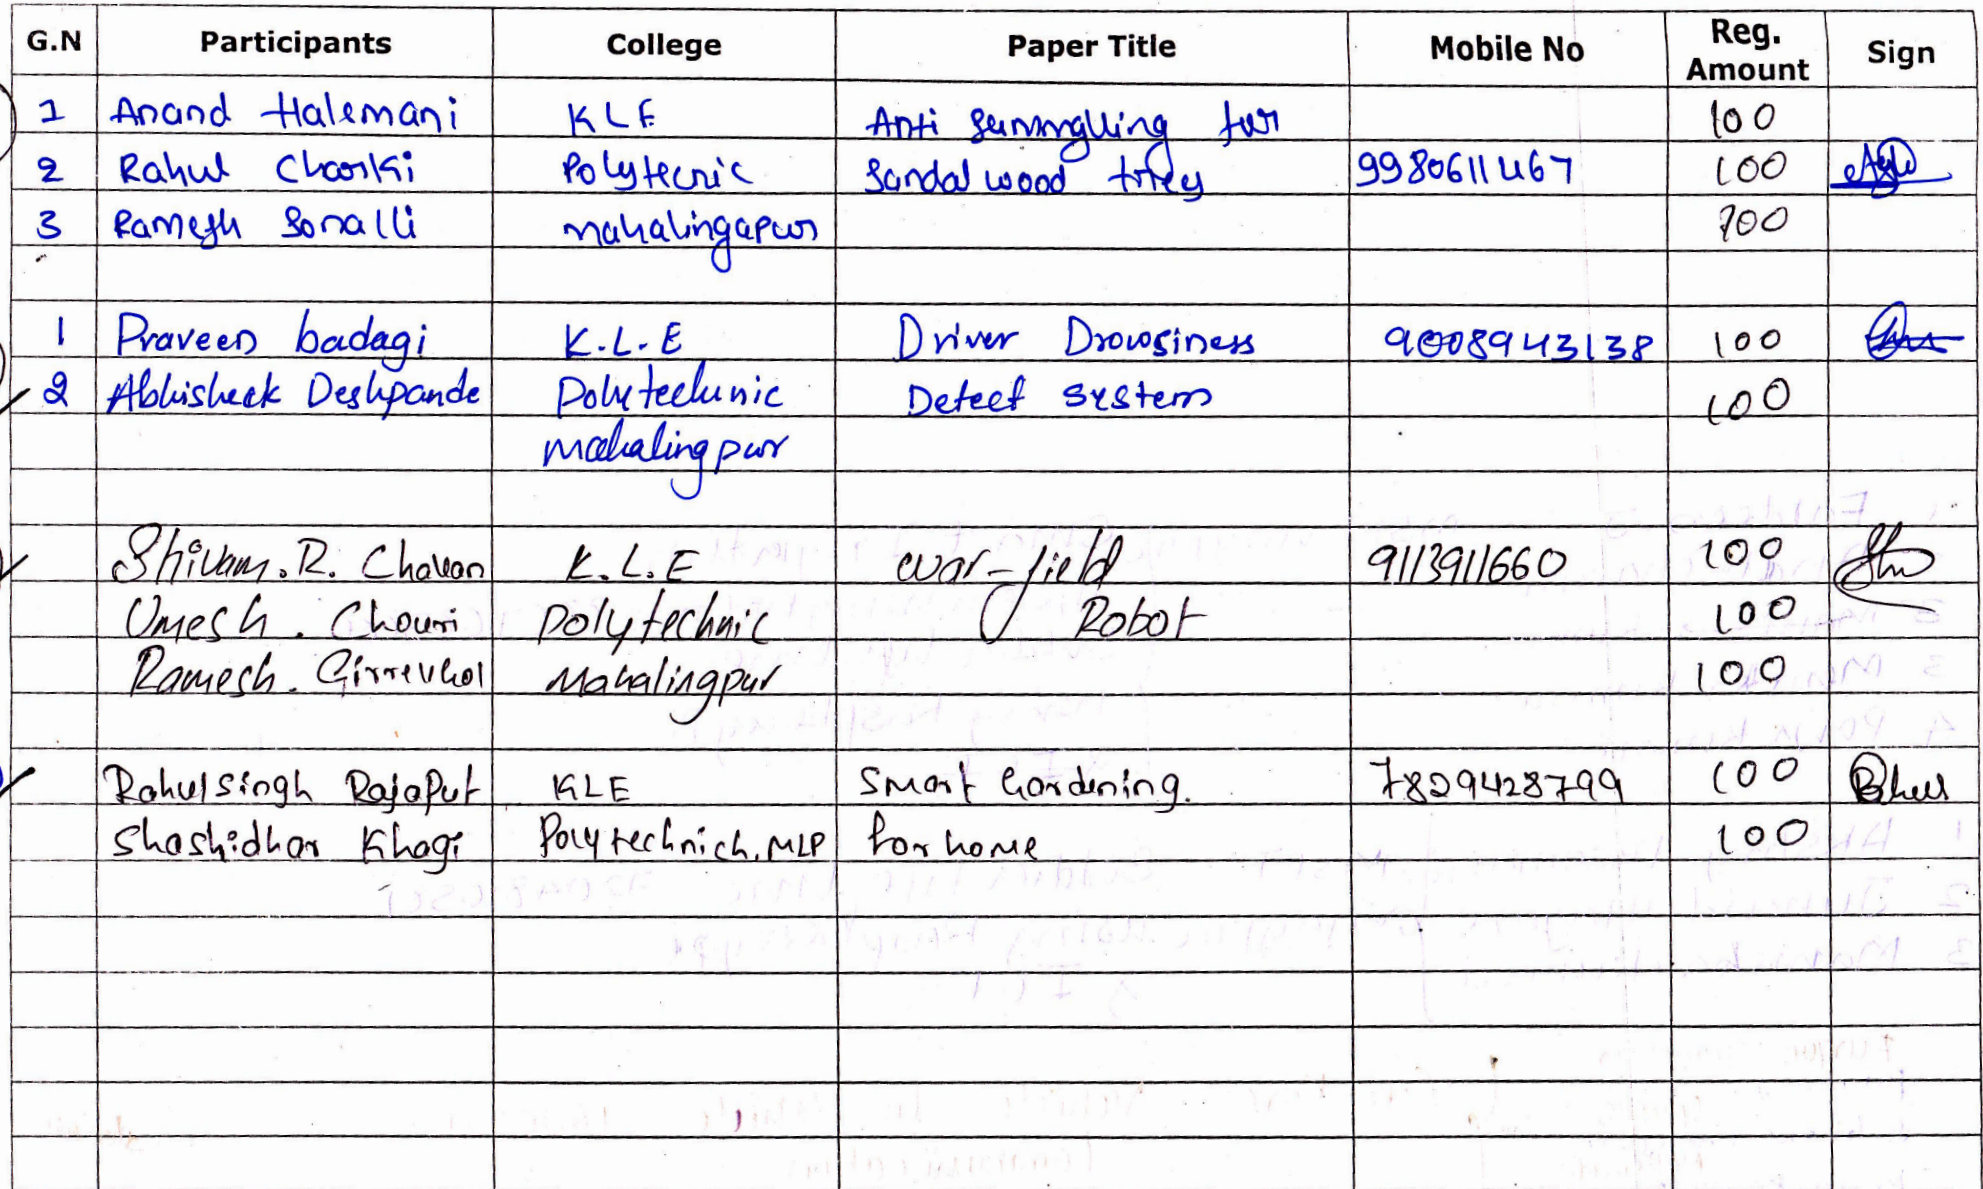 G.N Participants College Paper Title Mobile No Reg. Amount Sign
1 Anand Halemani KLE Anti summglling for 100
2 Rahul Choorki Polytecnic Sandal wood trees 9980611467 100
3 Ramesh Sonalli mahalingapur 100
1 Praveen badagi K.L.E Driver Drowsiness 9008943138 100
2 Abhisheck Deshpande Polytechnic Detect system 100
mahalingpur
Shivam.R. Chavan K.L.E war-field 9113911660 100
Umesh. Chouri Polytechnic Robot 100
Ramesh. Mahalingpur 100
Rahulsingh Rajaput KLE Smart Gardening. 7829428799 100
Shashidhar Khagi Polytechnich.MLP for home 100